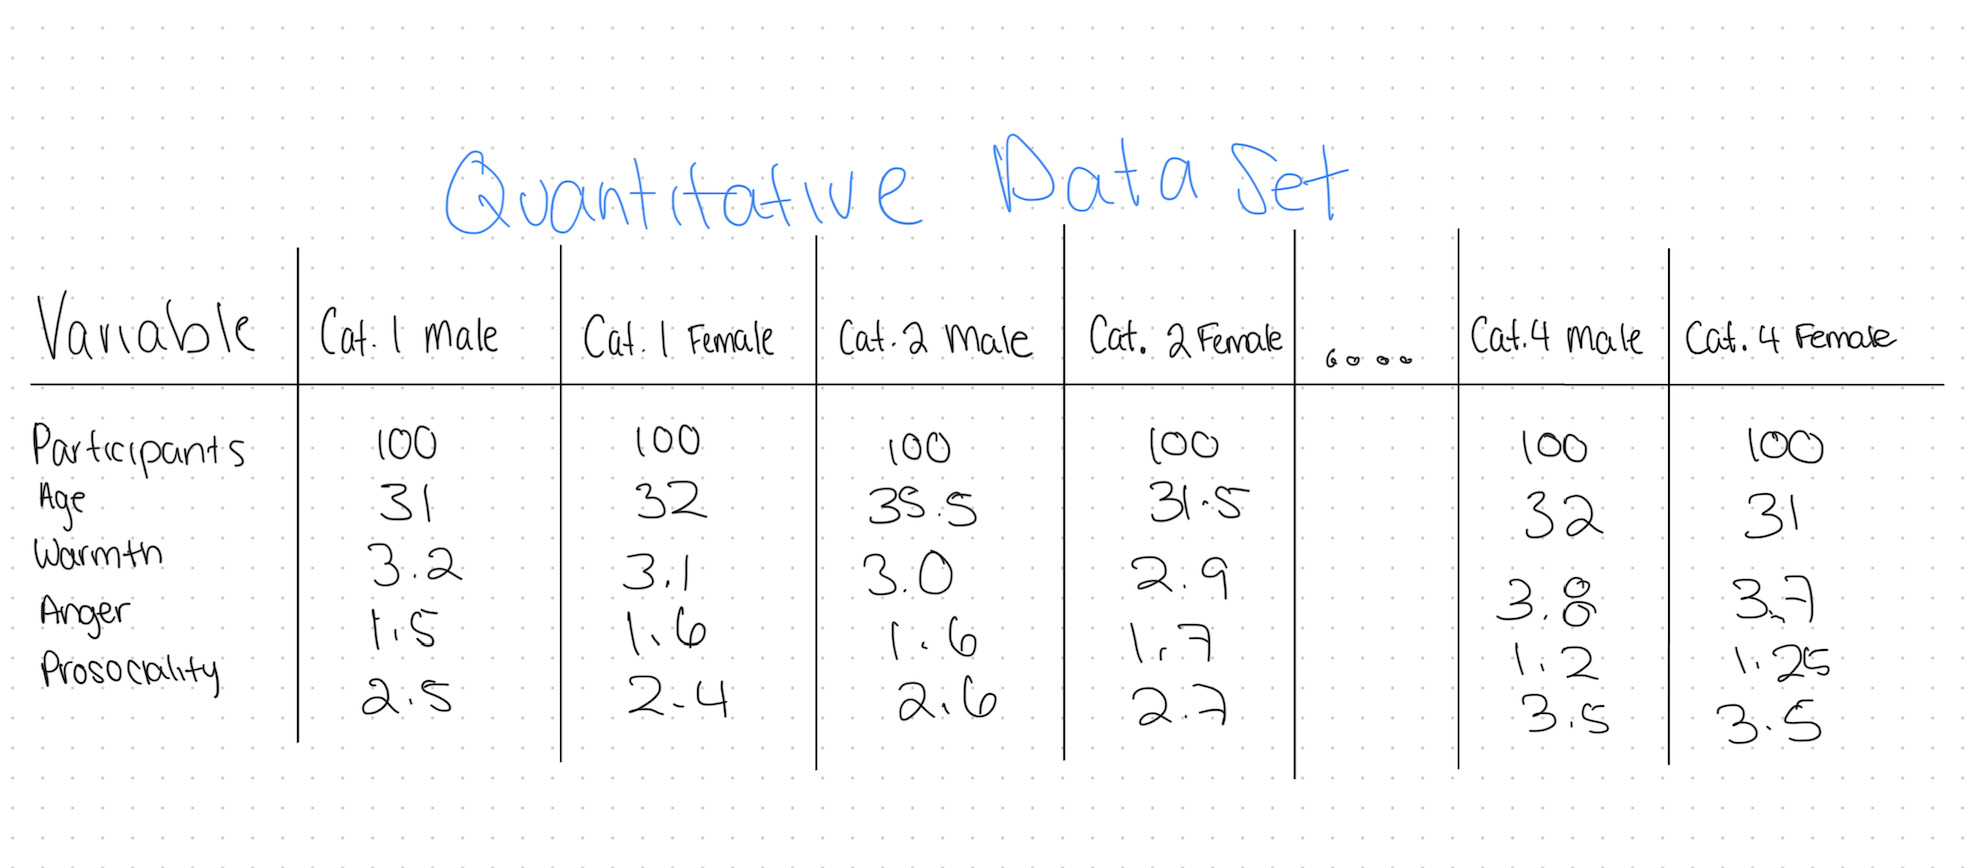 Quantitative Data Set
Variable Cat. 1 male Cat. 1 Female Cat. 2 male Cat. 2 Female .... Cat. 4 male Cat. 4 Female
Participants 100 100 100 100 100 100
Age 31 32 35.5 31.5 32 31
Warmth 3.2 3.1 3.0 2.9 3.8 3.7
Anger 1.5 1.6 1.6 1.7 1.2 1.25
Prosociality 2.5 2.4 2.6 2.7 3.5 3.5